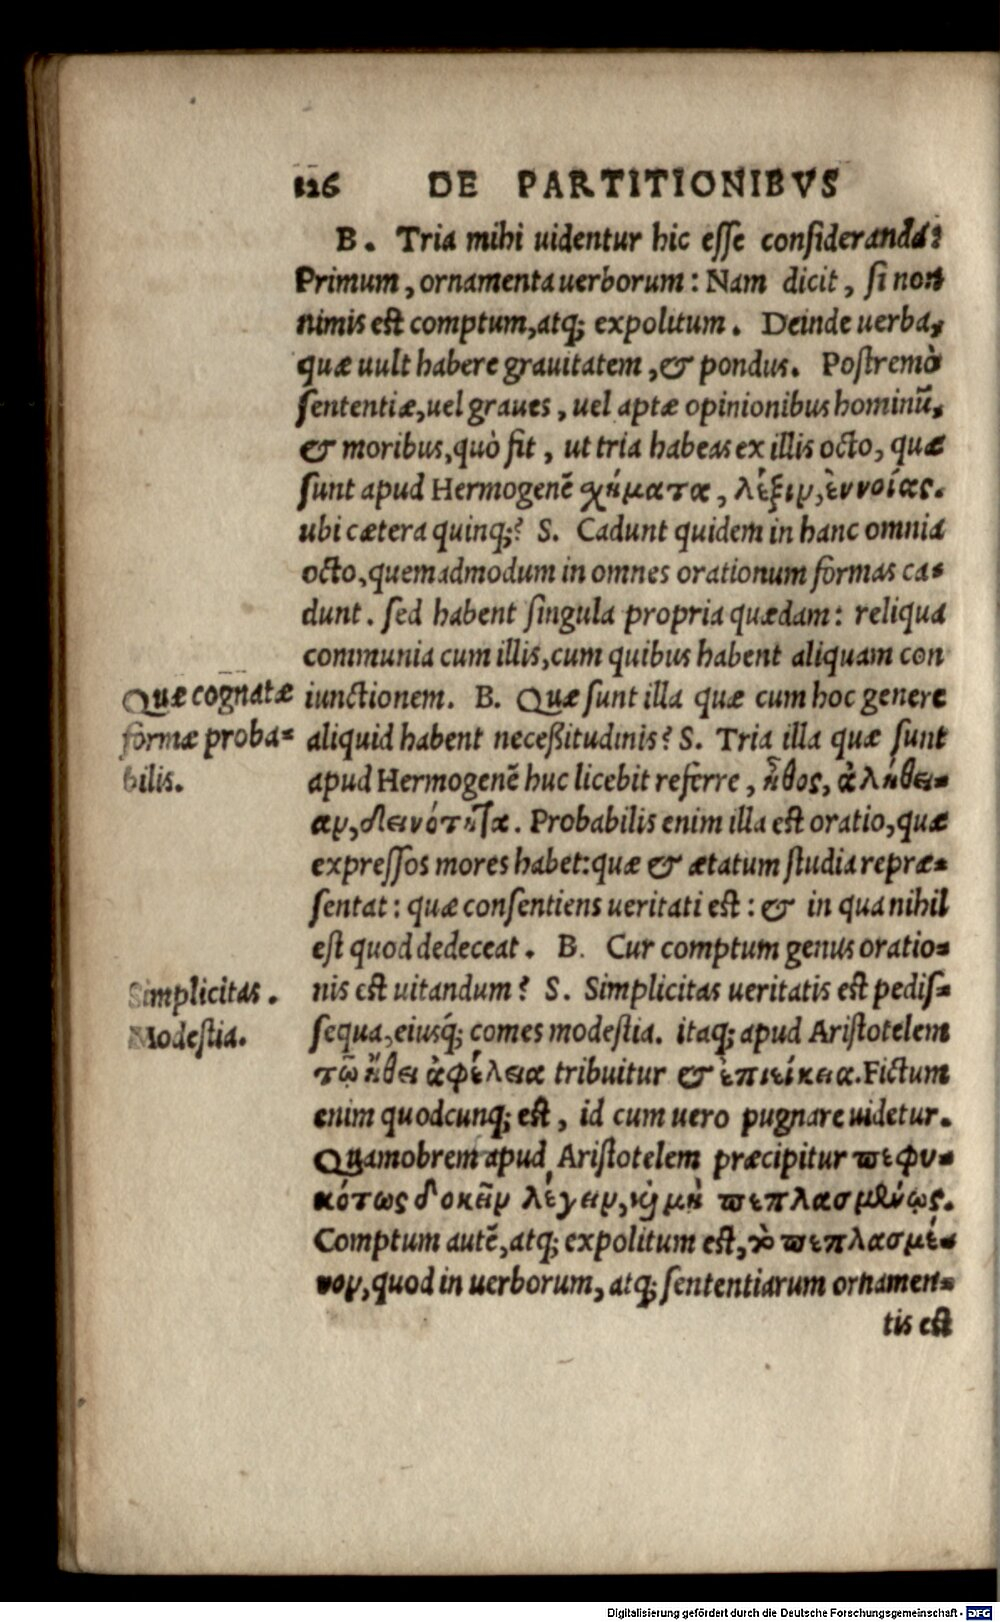 126 DE PARTITIONIBVS
B. Tria mihi uidentur hic esse consideranda:
Primum, ornamenta uerborum: Nam dicit, si non
nimis est comptum, atq; expolitum. Deinde uerba,
quæ uult habere grauitatem, & pondus. Postremò
sententiæ, uel graues, uel aptæ opinionibus hominũ,
& moribus, quò fit, ut tria habeas ex illis octo, quæ
sunt apud Hermogenẽ χήματα, λέξιν, ἐννοίας.
ubi cætera quinq;? S. Cadunt quidem in hanc omnia
octo, quemadmodum in omnes orationum formas ca-
dunt. sed habent singula propria quædam: reliqua
communia cum illis, cum quibus habent aliquam con
iunctionem. B. Quæ sunt illa quæ cum hoc genere
aliquid habent neceßitudinis? S. Tria illa quæ sunt
apud Hermogenẽ huc licebit referre, ἦθος, ἀλήθει-
αν, δεινότητα. Probabilis enim illa est oratio, quæ
expressos mores habet: quæ & ætatum studia repræ-
sentat: quæ consentiens ueritati est: & in qua nihil
est quod dedeceat. B. Cur comptum genus oratio-
nis est uitandum? S. Simplicitas ueritatis est pedis-
sequa, eiusq́; comes modestia. itaq; apud Aristotelem
τῶ ἤθει ἀφέλεια tribuitur & ἐπιείκεια. Fictum
enim quodcunq; est, id cum uero pugnare uidetur.
Quamobrem apud Aristotelem præcipitur πεφυ-
κότως δοκεῖν λέγειν, καὶ μὴ πεπλασμένως.
Comptum autẽ, atq; expolitum est, τὸ πεπλασμέ-
νον, quod in uerborum, atq; sententiarum ornamen-
tis est
Quæ cognatæ
formæ proba-
bilis.
Simplicitas.
Modestia.
Digitalisierung gefördert durch die Deutsche Forschungsgemeinschaft - DFG